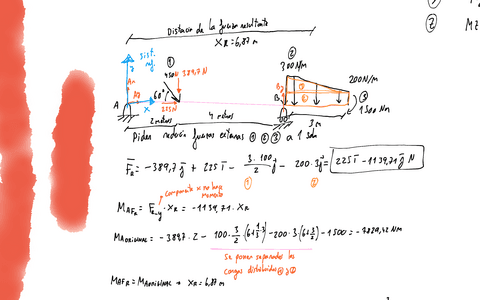 Distancia de la fuerza resultante
XR = 6,87 m
①
②
②
MZ
sist. ref.
y
450N
389,7 N
300 N/m
200 N/m
60°
A
x
225N
B
③
1500 Nm
2 metros
4 metros
3 m
Piden reducir fuerzas externas ① ② ③ a 1 sola
FR = -389,7 j + 225 i - 3·100/2 j - 200·3 j = 225 i - 1139,71 j N
① ②
Componente x no hace momento
MAFR = FR_y · XR = -1139,71 · XR
MAORIGINAL = -389,7·2 - 100·3/2·(6+1/3·3) - 200·3(6+3/2) - 1500 = -7829,42 Nm
Se ponen separadas las cargas distribuidas ① y ②
MAFR = MAORIGINAL → XR = 6,87 m